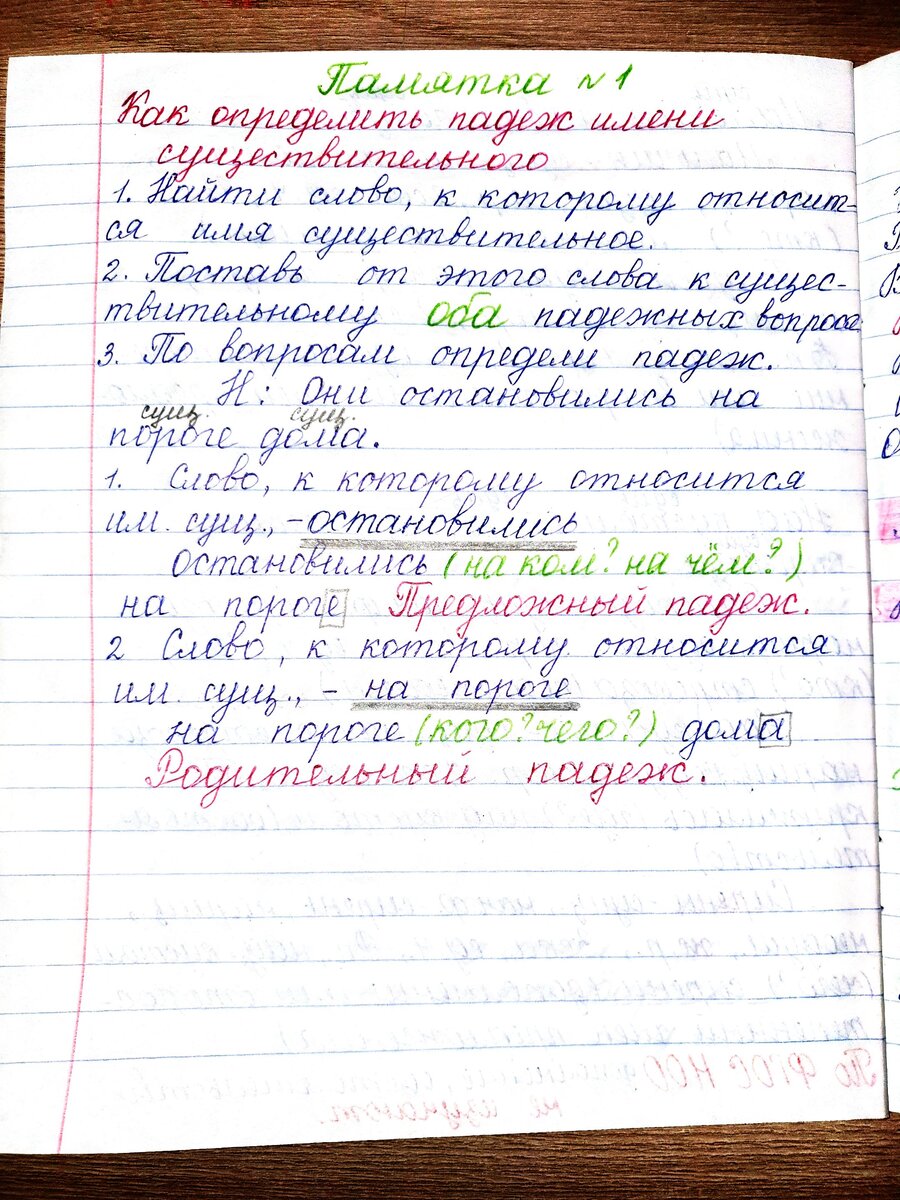 Памятка №1
Как определить падеж имени
существительного
1. Найти слово, к которому относит-
ся имя существительное.
2. Поставь от этого слова к сущес-
твительному оба падежных вопроса
3. По вопросам определи падеж.
Н: Они остановились на
сущ. сущ.
пороге дома.
1. Слово, к которому относится
им. сущ., – остановились
Остановились (на ком? на чём?)
на пороге Предложный падеж.
2 Слово, к которому относится
им. сущ., – на пороге
на пороге (кого? чего?) дома
Родительный падеж.